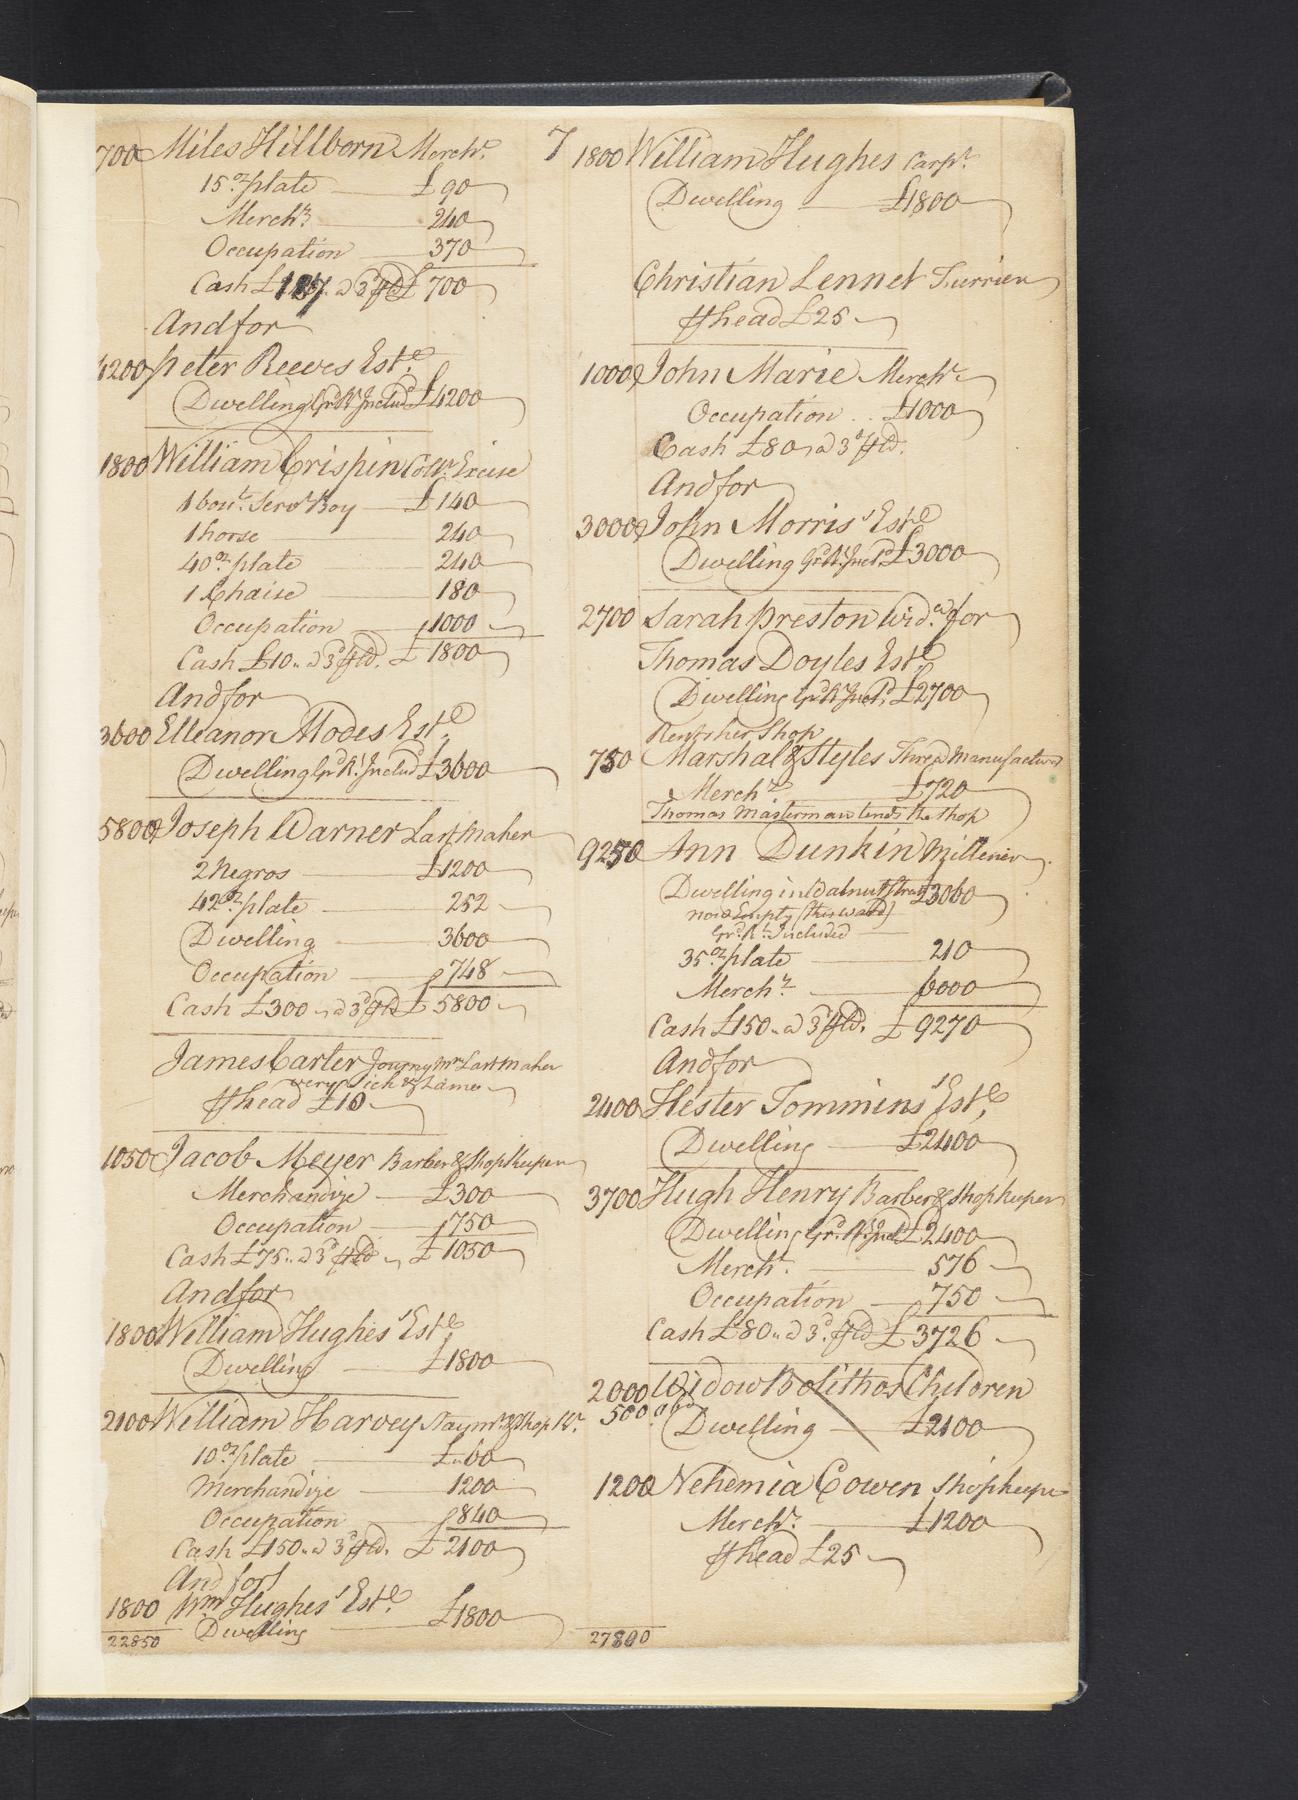 7
700 Miles Hillborn Merch.t
15 oz plate £90
Merch.z 240
Occupation 370
Cash £127. a 3.d £700
And for
4200 Peter Reeves Est.e
Dwelling Gr.d R.t Includ.d £4200
1800 William Crispin Coll.r Excise
1 bou.t Serv.t Boy £140
1 horse 240
40 oz plate 240
1 Chaise 180
Occupation 1000
Cash £10 .. a 3.d £1800
And for
3600 Elleanor Modes Est.e
Dwelling Gr.d R.t Includ.d £3600
5800 Joseph Warner Last maker
2 Negros £1200
42 oz plate 252
Dwelling 3600
Occupation 748
Cash £300 .. a 3.d £5800
James Carter Journy M.n Last maker
very Sick & Lame
head £10
1050 Jacob Meyer Barber & Shopkeeper
Merchandize £300
Occupation 750
Cash £75 .. a 3.d £1050
And for
1800 William Hughes' Est.e
Dwelling £1800
2100 William Harvey Staym.r & Shop K.r
10 oz plate £ 60
Merchandize 1200
Occupation 840
Cash £150 .. a 3.d £2100
And for
1800 Wm Hughes' Est.e
Dwelling £1800
22850
1800 William Hughes Carp.t
Dwelling £1800
Christian Lennet Furrier
head £25
1000 John Marie Merch.t
Occupation £1000
Cash £80 .. a 3.d
And for
3000 John Morris' Est.e
Dwelling Gr.d R.t Incl.d £3000
2700 Sarah Preston Wid.w for
Thomas Doyles Est.e
Dwelling Gr.d R.t Incl.d £2700
Rents her Shop
750 Marshal & Styles Thread Manufacturers
Merch.z £720
Thomas Masterman tends the Shop
9250 Ann Dunkin Millener
Dwelling in Walnut Street £3060
now Empty (this ward)
Gr.d R.t Included
35 oz plate 210
Merch.z 6000
Cash £150 .. a 3.d £9270
And for
2400 Hester Tommins' Est.e
Dwelling £2400
3700 Hugh Henry Barber & Shopkeeper
Dwelling Gr.d R.t Incl.d £2400
Merch.z 576
Occupation 750
Cash £80 .. a 3.d £3726
2000 Widow Bolithos Children
500 aba
Dwelling £2100
1200 Nehemia Cowen Shopkeeper
Merch.z £1200
head £25
27800